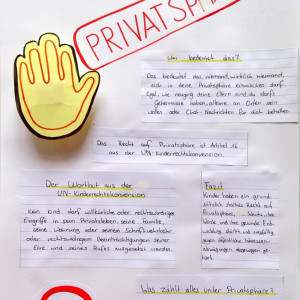 PRIVATSPHÄ
Was bedeutet das?
Das bedeutet das niemand, wirklich niemand,
sich in deine Privatsphäre einmischen darf.
Egal, wie neugierig deine Eltern sind du darfst
Geheimnisse haben, alleine an Orten sein
wollen oder Chat-Nachrichten für dich behalten.
Das Recht auf Privatsphäre ist Artikel 16
aus der UN-Kinderrechtskonvention.
Der Wortlaut aus der
UN-Kinderrechtskonvention
Kein Kind darf willkürliche oder rechtswidrige
Eingriffe in sein Privatleben, seine Familie,
seine Wohnung oder seinen Schriftverkehr
oder rechtswidrigen Beeinträchtigungen seiner
Ehre und seines Rufes ausgesetzt werden.
Fazit
Kinder haben ein grund-
sätzlich starkes Recht auf
Privatsphäre,
Würde und ihre gesunde Ent-
wicklung dürfen und
gegen
Was zählt alles unter Privatsphäre?